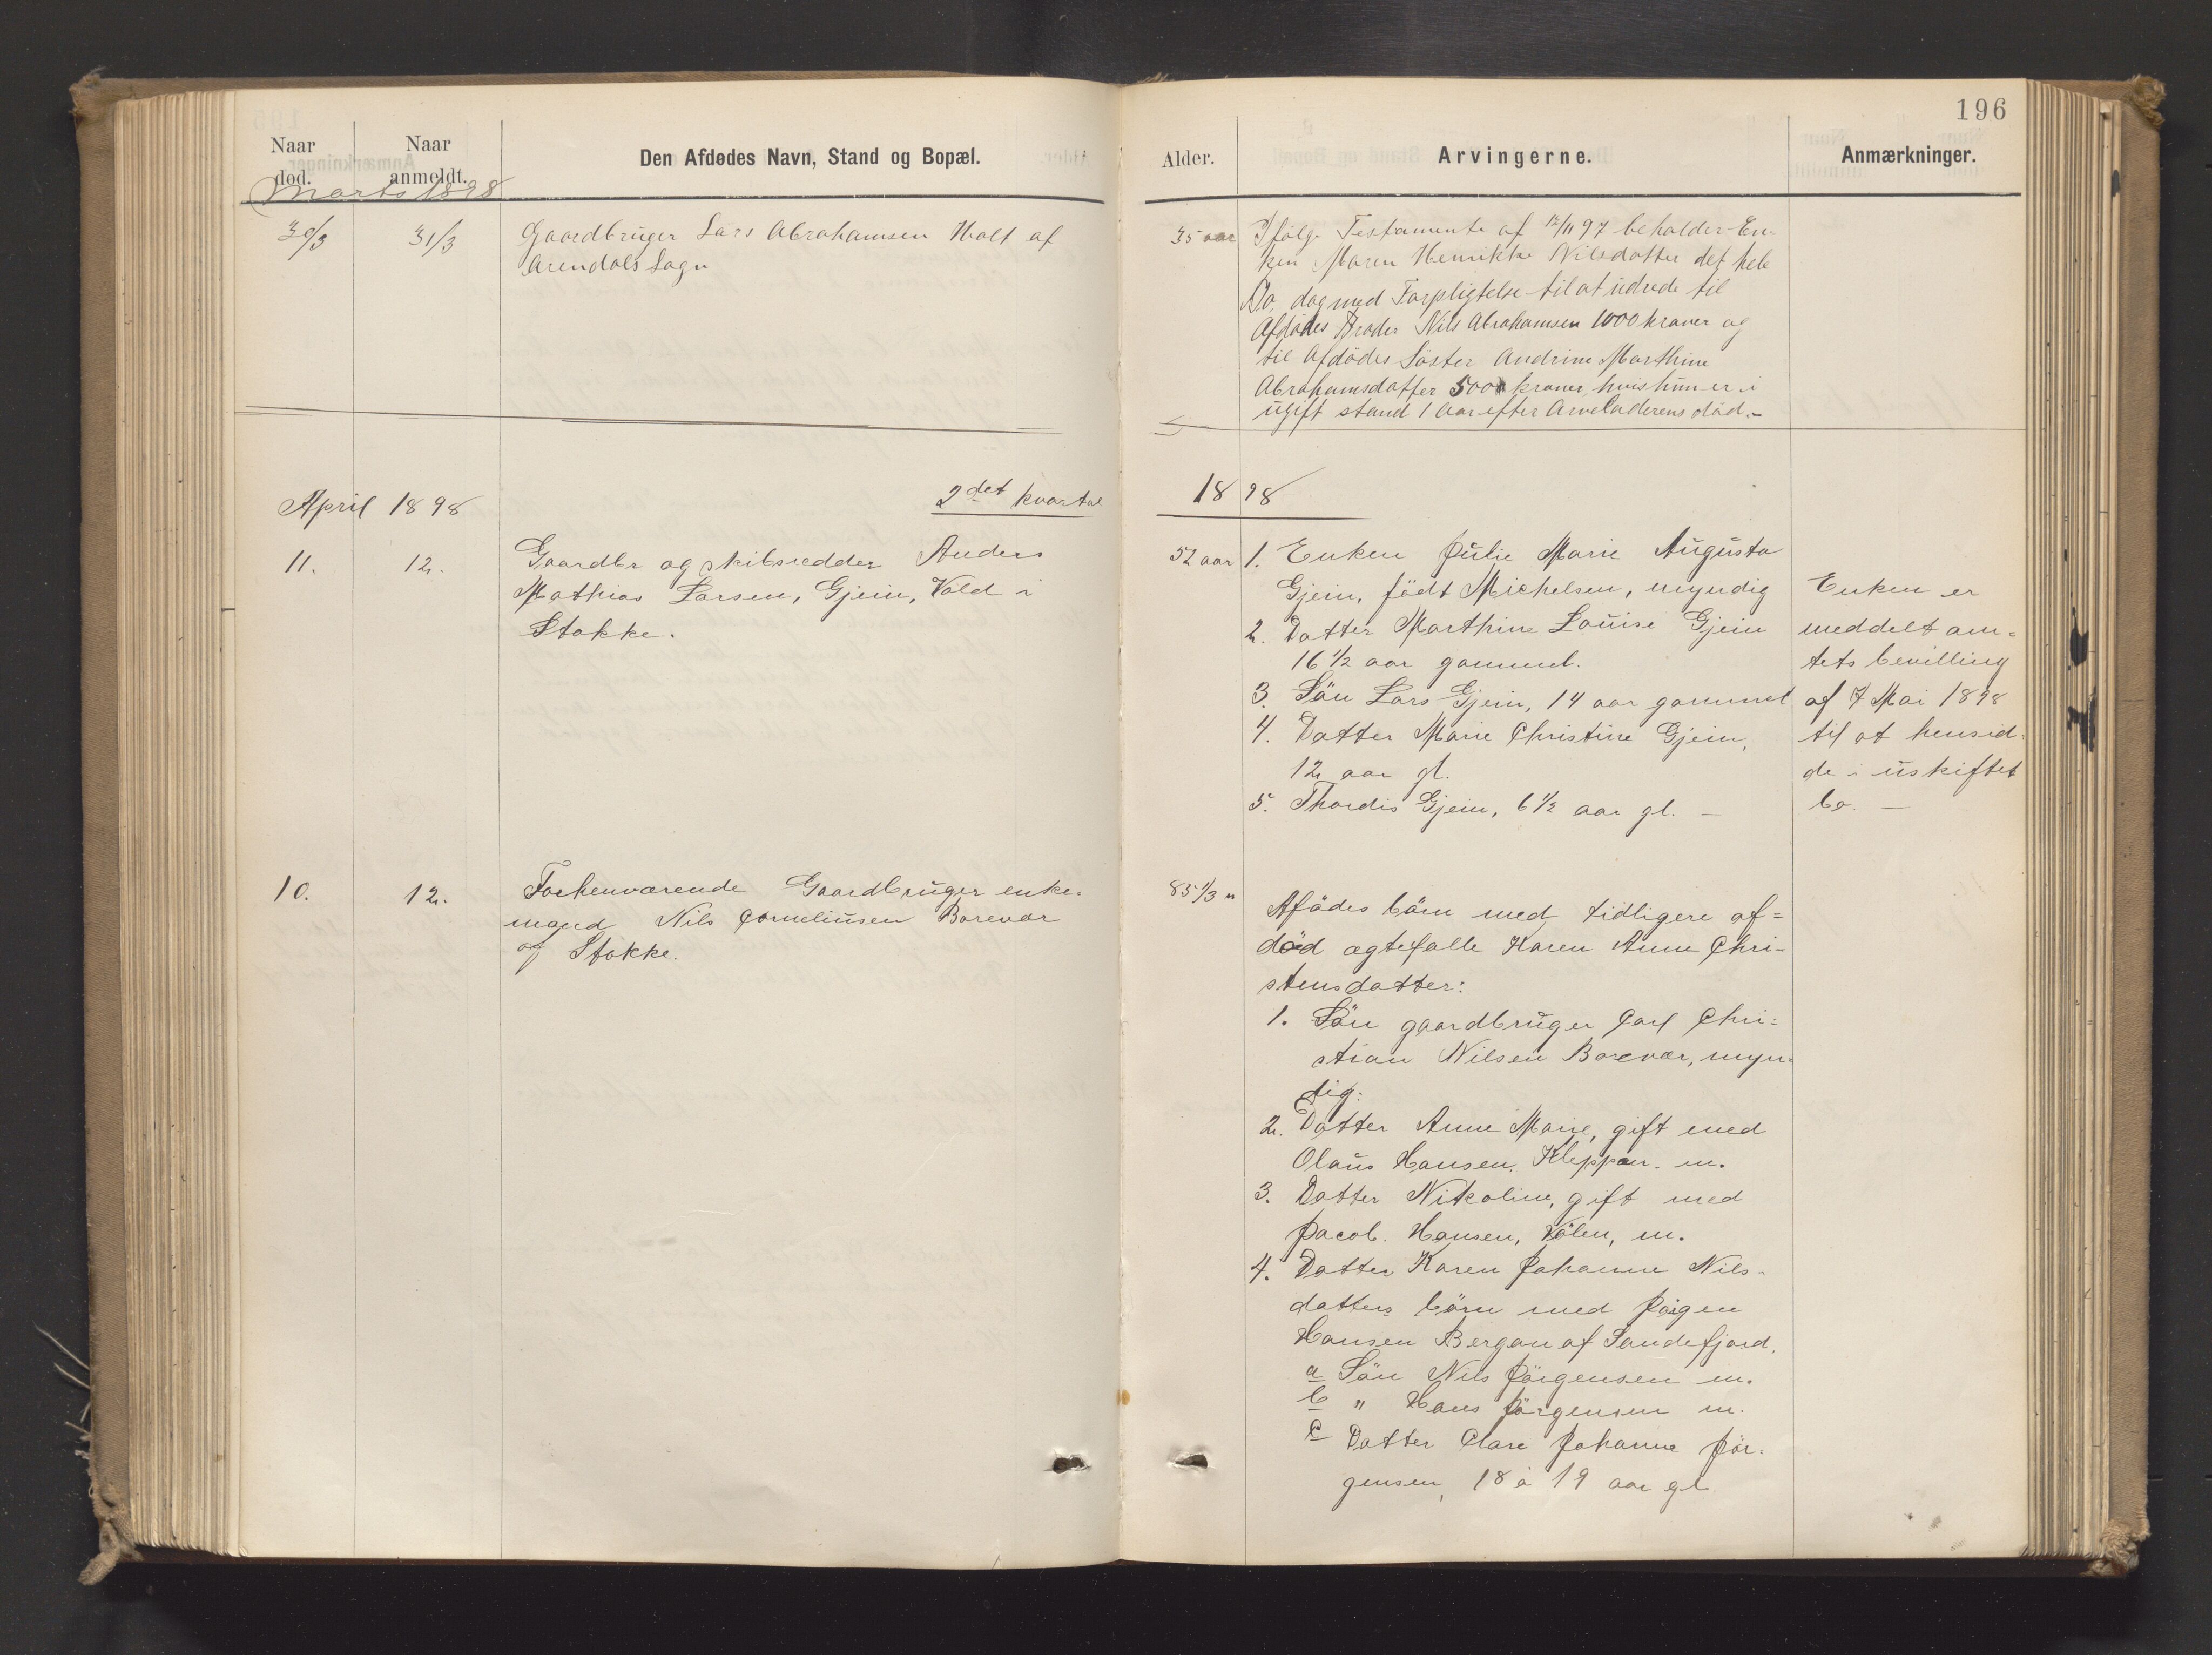 196
Naar død.
Naar anmeldt.
Den Afdødes Navn, Stand og Bopæl.
Alder.
Arvingerne.
Anmærkninger.
Marts 1898
30/3
31/3
Gaardbruger Lars Abrahamsen Holt af
Arendals Sogn
35 aar
Ifølge Testamente af 17/11 97 beholder En-
ken Maren Henrikke Nilsdatter det hele
Bo, dog med Forpligtelse til at udrede til
Afdødes Broder Nils Abrahamsen 1000 kroner og
til Afdødes Søster Andrine Marthine
Abrahamsdatter 500 kroner, hvis hun er i
ugift stand 1 Aar efter Arveladerens död.-
April 1898
2det kvartal
1898
11.
12.
Gaardbr og skibsredder Anders
Mathias Larsen, Gjein, Vold i
Stokke.
52 aar
1. Enken Julie Marie Augusta
Gjein, födt Michelsen, myndig
2. Datter Marthine Louise Gjein
16 1/2 aar gammel.
3. Sön Lars Gjein, 14 aar gammel
4. Datter Marie Christine Gjein,
12 aar gl.
5. Thordis Gjein, 6 1/2 aar gl. —
Enken er
meddelt am=
tets bevilling
af 7 Mai 1898
til at hensid-
de i uskiftet
bo. —
10.
12.
Forhenværende Gaardbruger enke-
mand Nils Corneliusen Borevar
af Stokke.
85 1/3 "
Afödes börn med tidligere af=
död ægtefælle Karen Anne Chri-
stensdatter:
1. Sön gaardbruger Carl Chri=
stian Nilsen Borevar, myn=
dig.
2. Datter Anne Marie, gift med
Olaus Hansen, Kleppan. m.
3. Datter Nikoline, gift med
Jacob Hansen, Völen, m.
4. Datter Karen Johanne Nils-
datters börn med Jörgen
Hansen Bergan af Sandefjord.
a Sön Nils Jörgensen m.
b " Hans Jörgensen m.
c Datter Clare Johanne Jör-
gensen, 18 à 19 aar gl